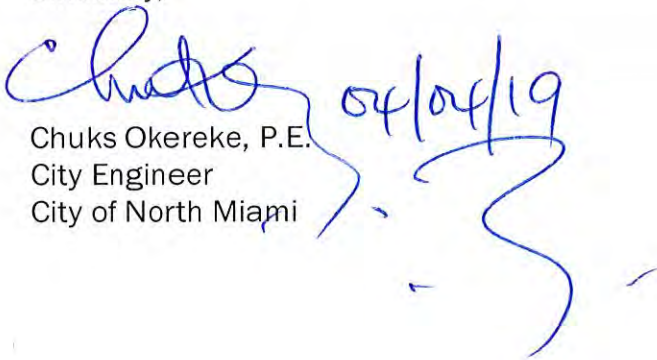 Chuks 04/04/19
Chuks Okereke, P.E.
City Engineer
City of North Miami